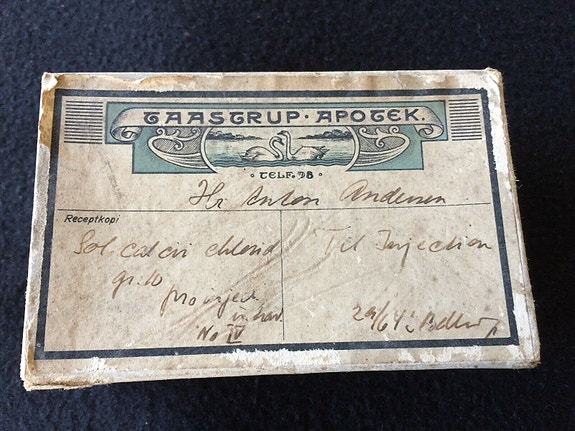 TAASTRUP · APOTEK.
· TELF. 98 ·
Hr Anton Andersen
Receptkopi
Sol. calcii chlorid
gr. 10
pro inject.
No IV
Til Injection
29/6 41